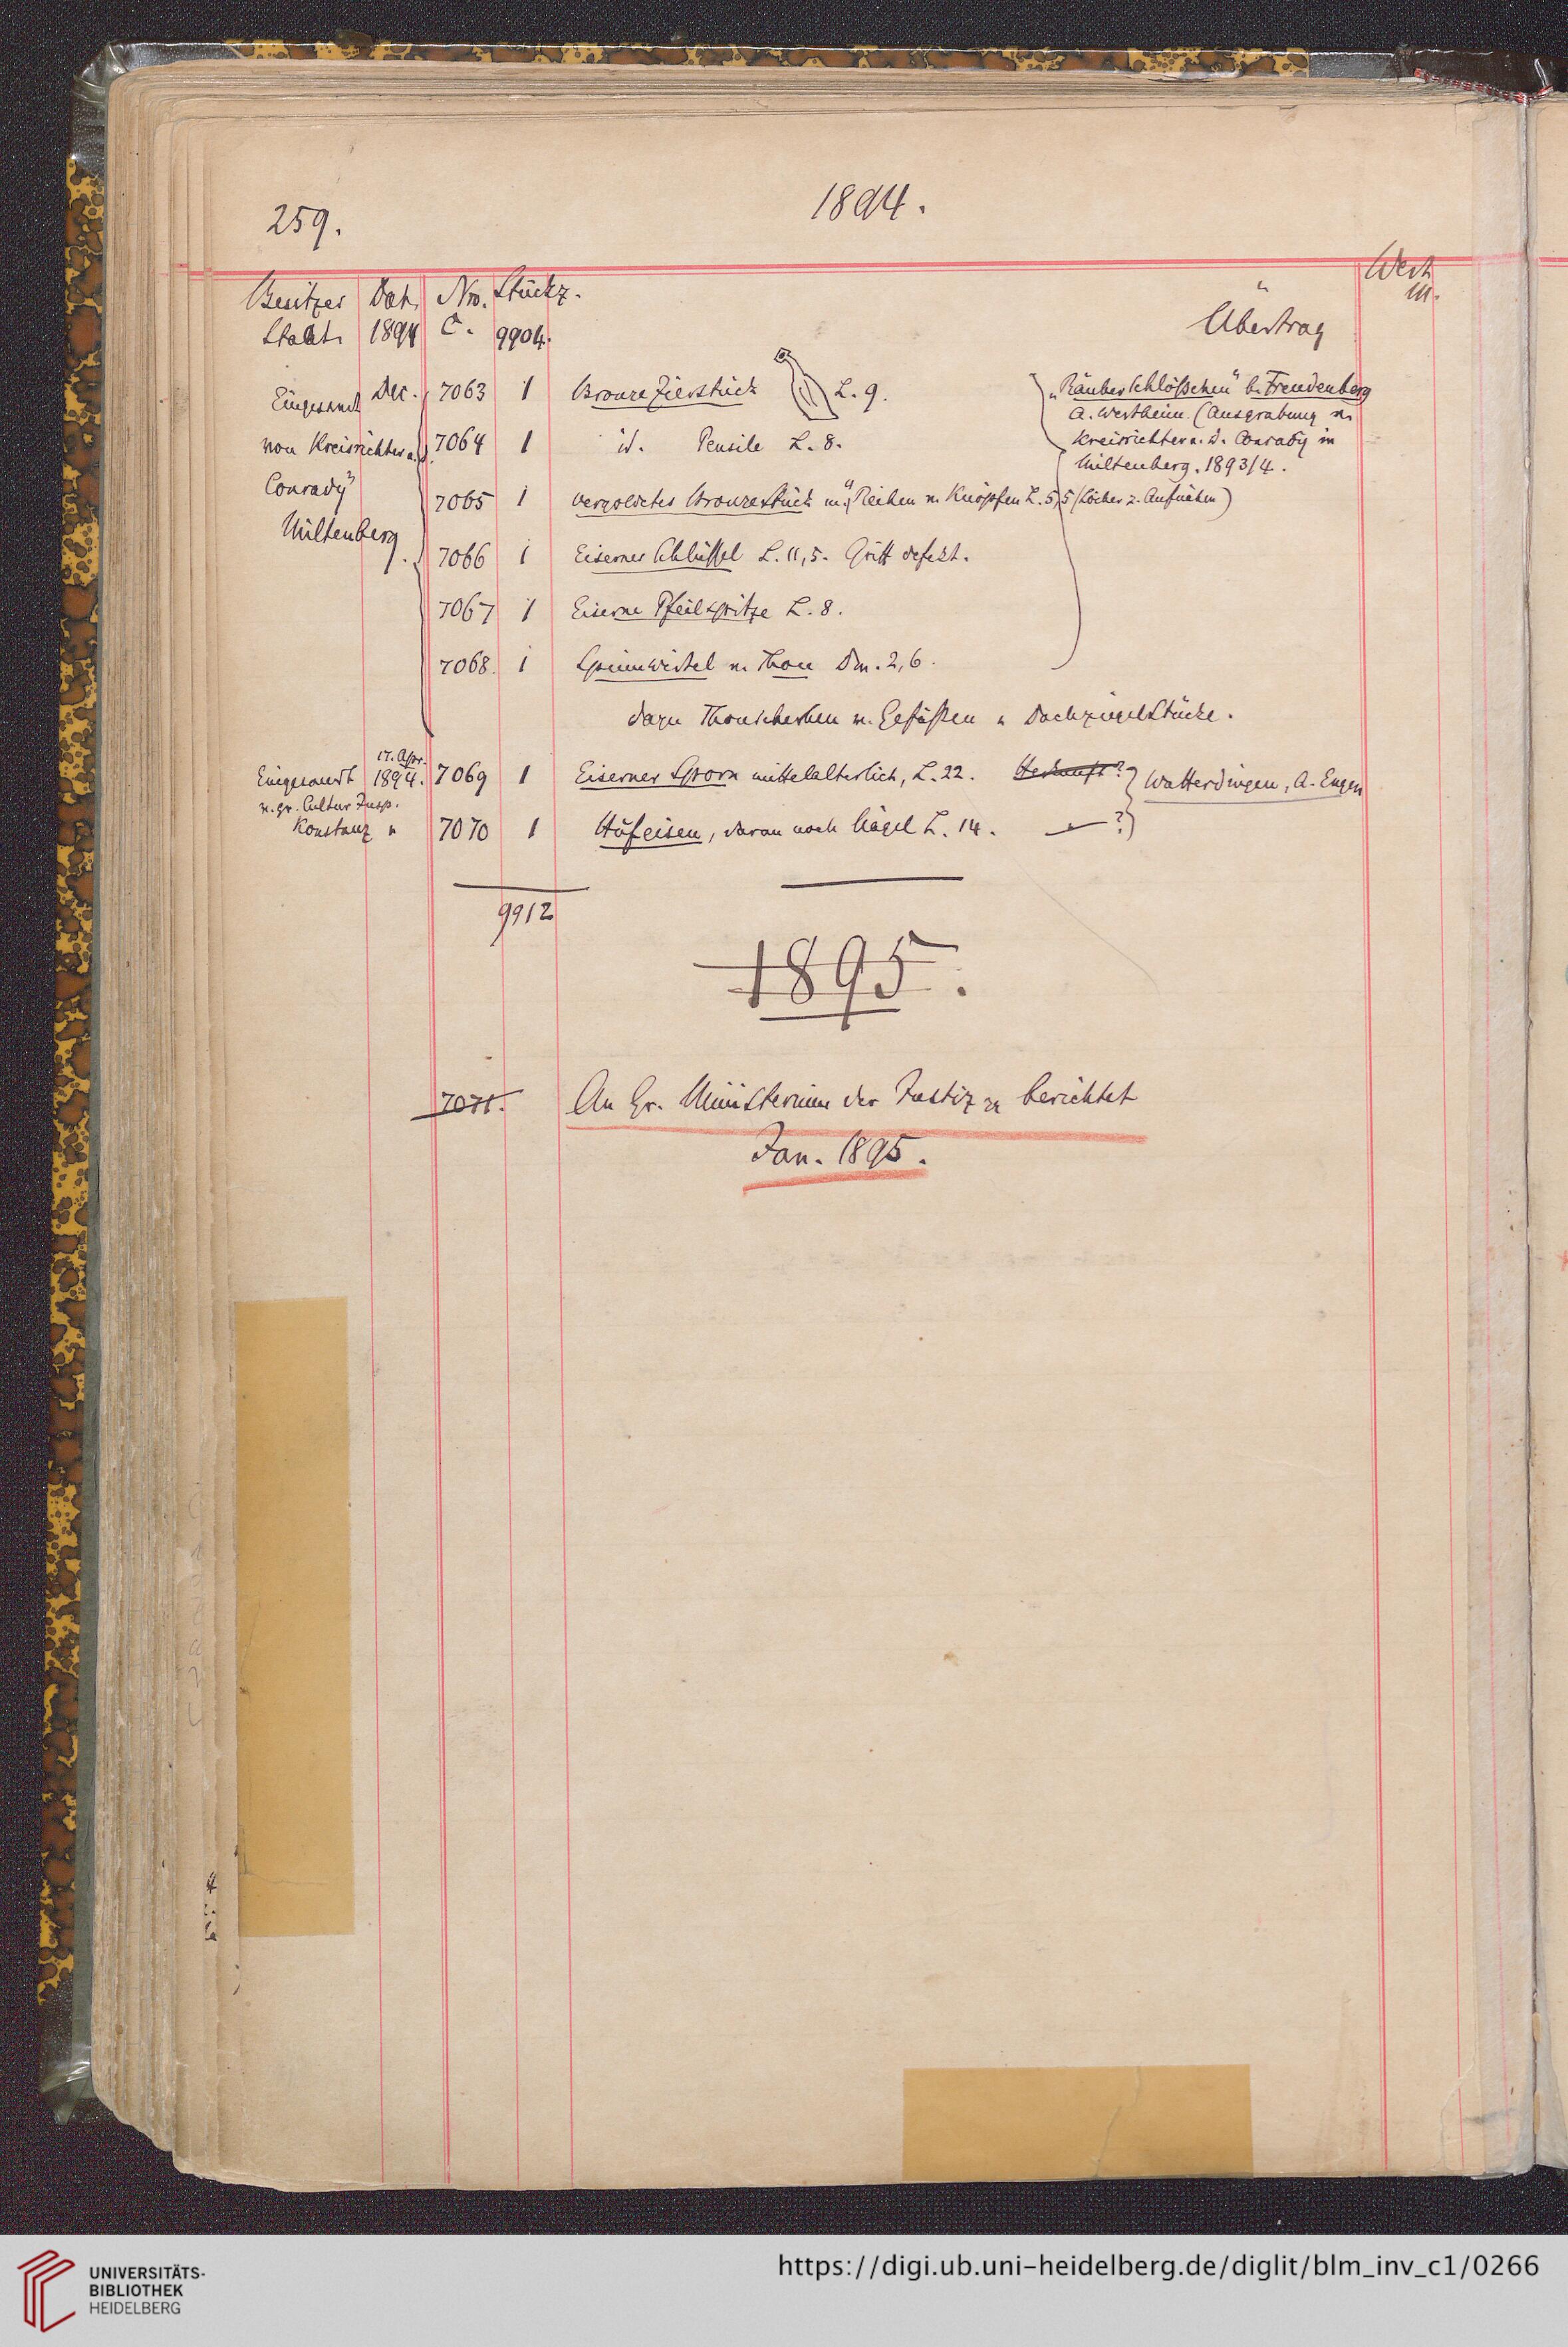 259.
1894.
Besitzer Dat. Nro. Stückz. Wert
M.
Staat. 1894 C. 9904. Übertrag
Eingesandt Dec. 7063 1 Bronze Zierstück L. 9. „Räuberschlößchen" b. Freudenberg
A. Wertheim. (Ausgrabung v.
von Kreisrichter a. D. 7064 1 id. Pensile L. 8. Kreisrichter a. D. Conrady in
Miltenberg. 1893/4.
Conrady
7065 1 vergoldetes Bronzestück m. Reihen v. Knöpfen L. 5,5 (Löcher z. Aufnähen)
Miltenberg.
7066 1 Eiserner Schlüssel L. 11,5. Griff defekt.
7067 1 Eiserne Pfeilspitze L. 8.
7068. 1 Spinnwirtel v. Thon Dm. 2,6.
dazu Thonscherben v. Gefäßen u Dachziegelstücke.
17. Apr.
Eingesandt 1894. 7069 1 Eiserner Sporn mittelalterlich, L. 22. Herkunft? Watterdingen, A. Engen
v. gr. Cultur Insp.
Konstanz 7070 1 Hufeisen, daran noch Nägel L. 14. — ?
9912
1895.
7071. An Gr. Ministerium der Justiz berichtet
Jan. 1895.
UNIVERSITÄTS-
BIBLIOTHEK
HEIDELBERG
https://digi.ub.uni-heidelberg.de/diglit/blm_inv_c1/0266